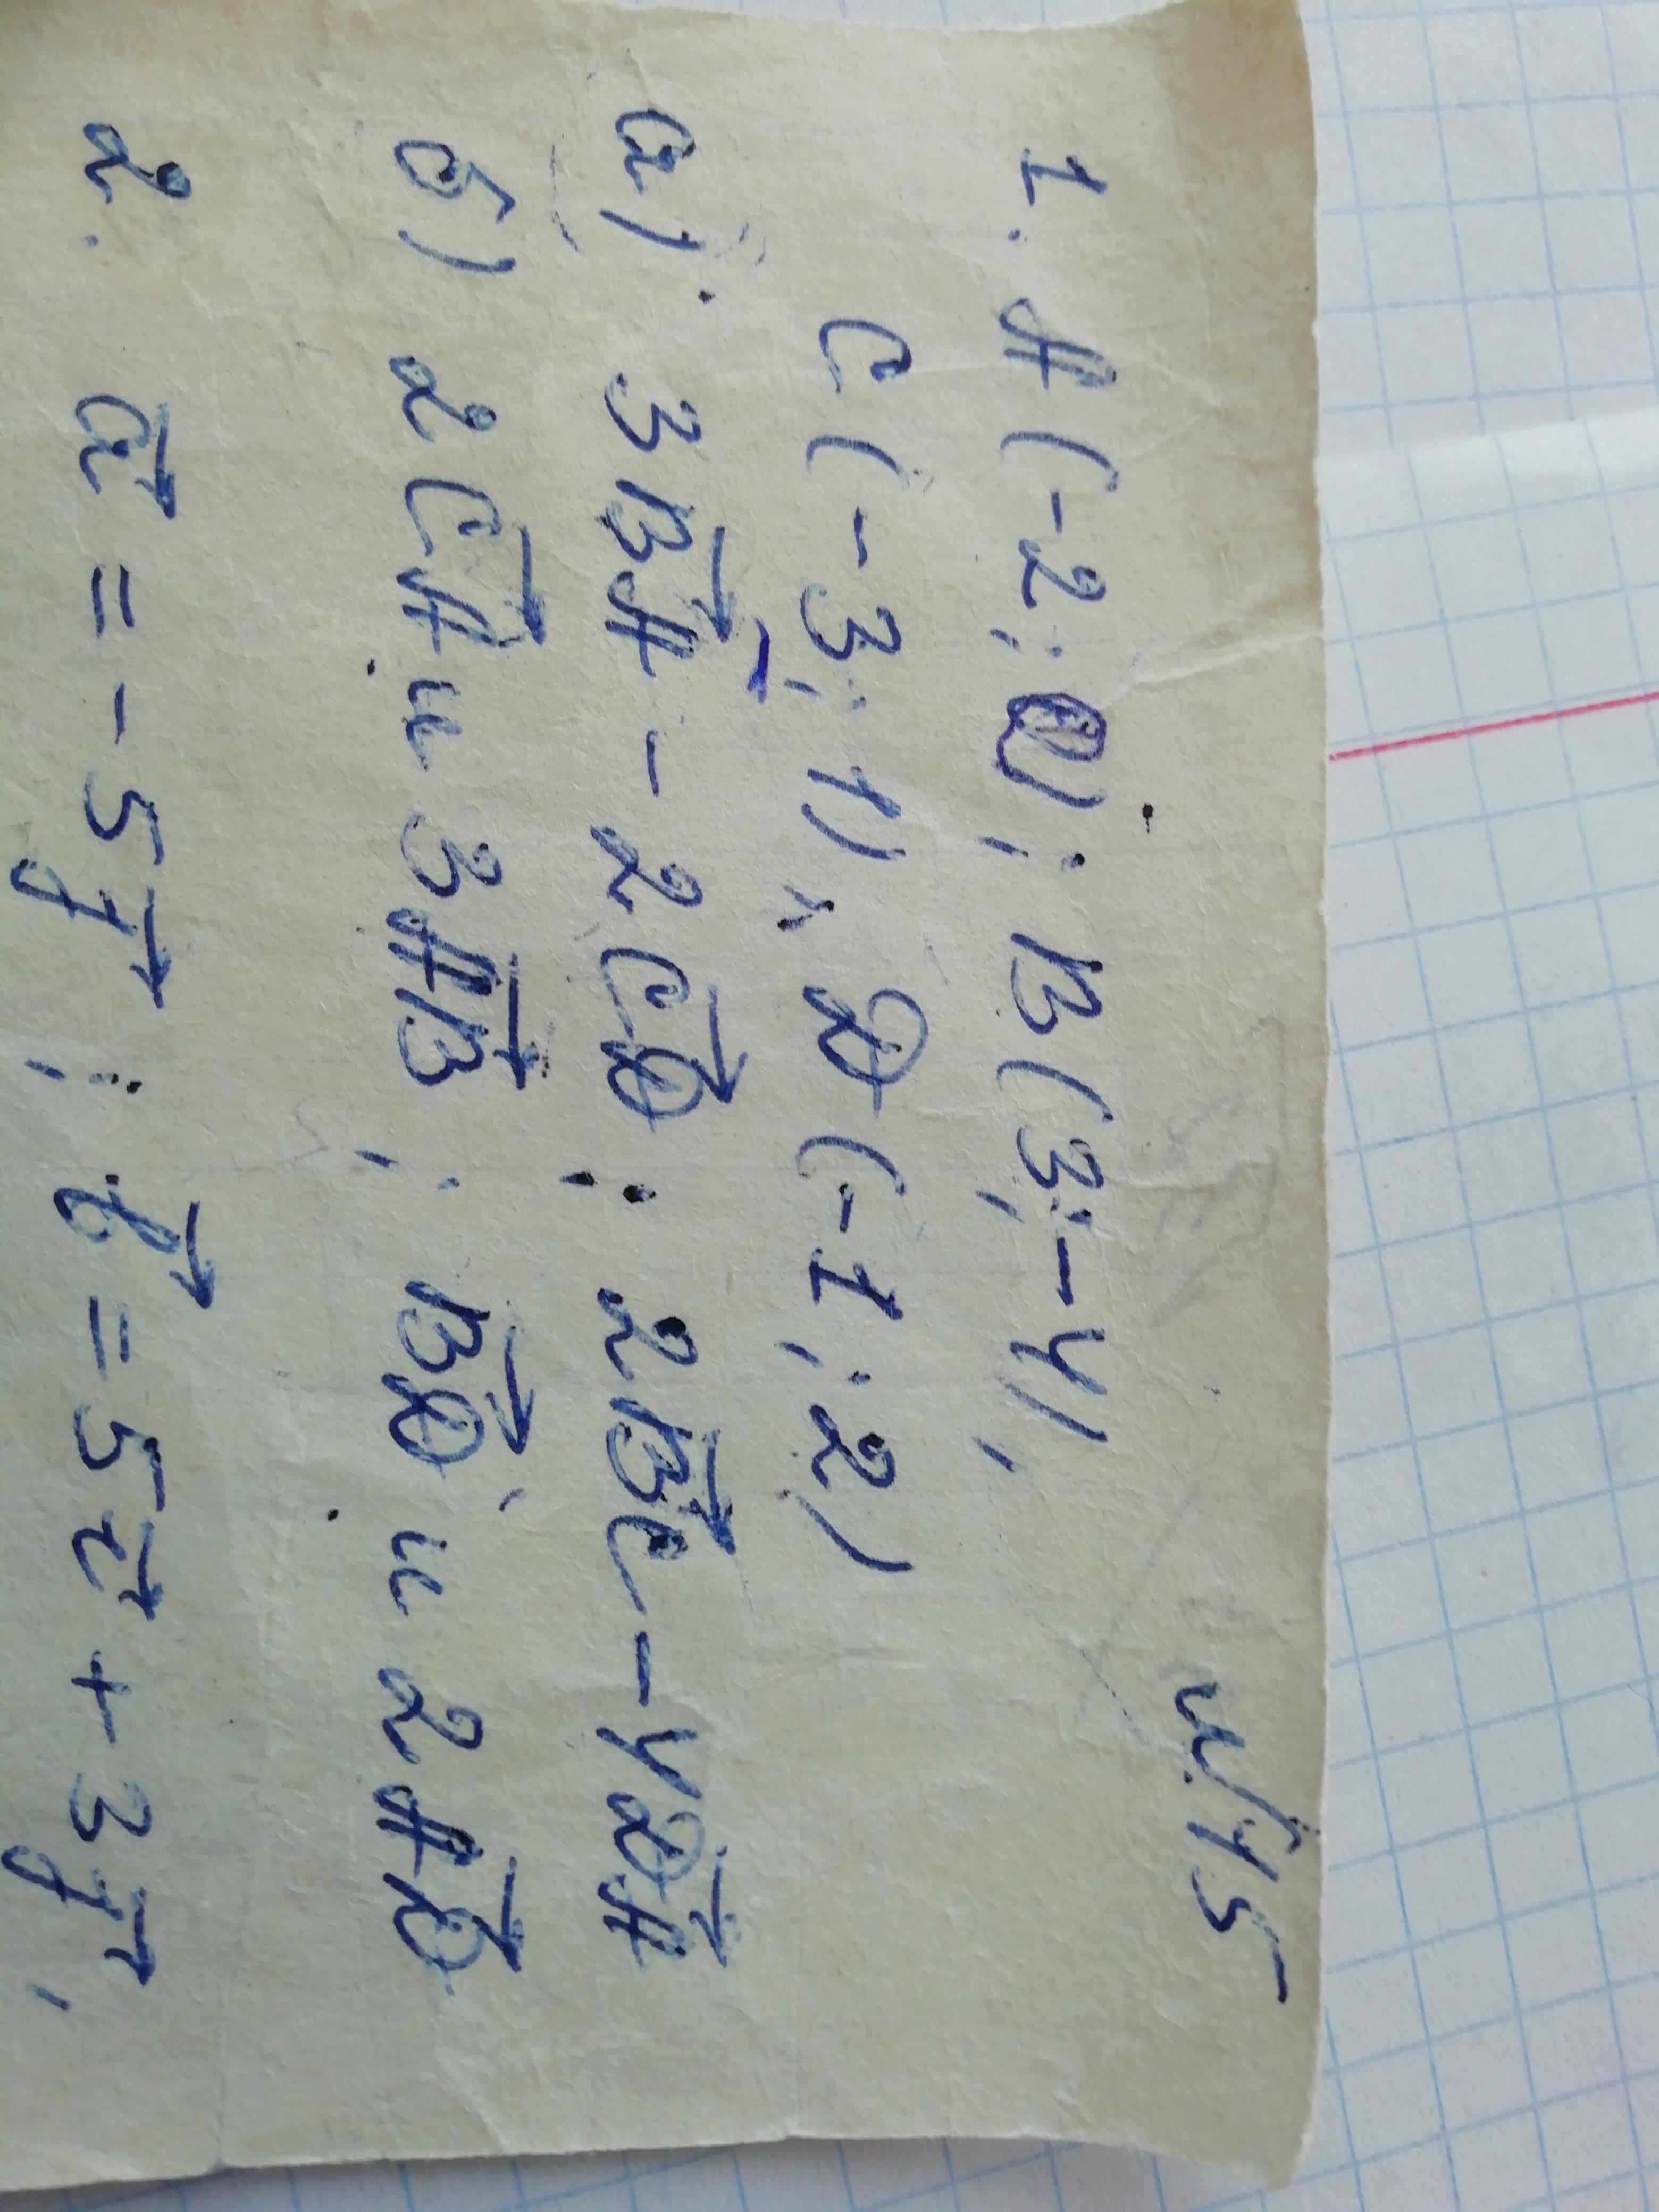 1. A(-2; 0); B(3; -4),
C(-3; 1), D(-1; 2)
а) 3BA - 2CD; 2BC - 4DA
б) 2CA и 3AB; BD и 2AD
2. a = -5j; b = 5i + 3j,